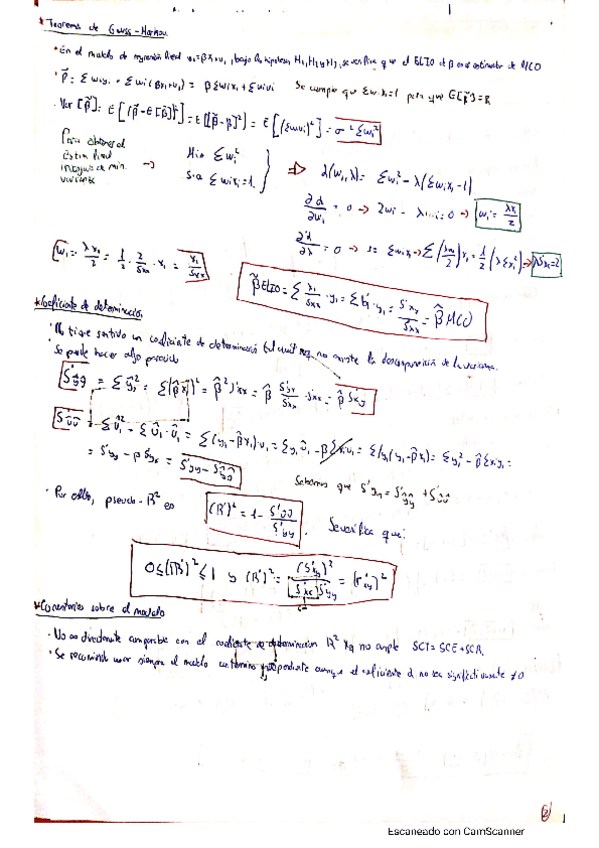 * Teorema de Gauss-Markov
• En el modelo de regresión lineal yi=βxi+ui, bajo las hipótesis H1, H2 y H3, se verifica que el ELIO de β es el estimador de MCO
• β̃ = Σωiyi = Σωi(βxi+ui) = βΣωixi + Σωiui Se cumple que Σωixi=1 para que E[β̃]=β
• Var[β̃] = E[(β̃-E[β̃])²] = E[(β̃-β)²] = E[(Σωiui)²] = σ²Σωi²
Para obtener el estim. lineal insesgado de min. varianza → Min Σωi² s.a Σωixi=1 ⇒ L(ωi,λ) = Σωi² - λ(Σωixi-1)
∂L/∂ωi = 0 → 2ωi - λxi = 0 → ωi = λxi/2
∂L/∂λ = 0 → 1 = Σωixi → Σ(λxi/2)xi = 1/2(λΣxi²) → λS'xx=2
ωi = λxi/2 = 1/2 · 2/S'xx · xi = xi/S'xx
β̃ELIO = Σ xi/S'xx · yi = S'xy/S'xx = β̂MCO
* Coeficiente de determinación
• No tiene sentido un coeficiente de determinación xq no existe la descomposición de la varianza.
• Se puede hacer algo parecido
S'ŷŷ = Σŷi² = Σ(β̂xi)² = β̂²S'xx = β̂ S'xy/S'xx · S'xx = β̂S'xy
S'ûû = Σûi² = Σûi·ûi = Σ(yi-β̂xi)·ûi = Σyiûi - β̂Σxiûi = Σyi(yi-β̂xi) = Σyi² - β̂Σxiyi =
= S'yy - β̂S'xy = S'yy - S'ŷŷ Sabemos que S'yy = S'ŷŷ + S'ûû
• Por ello, pseudo-R² es (R')² = 1 - S'ûû/S'yy. Se verifica que:
0≤(R')²≤1 y (R')² = (S'xy)²/S'xx S'yy = (r'xy)²
* Comentarios sobre el modelo
• No es directamente comparable con el coeficiente de determinación R² xq no cumple SCT = SCE + SCR.
• Se recomienda usar siempre el modelo con término independiente aunque el coeficiente α no sea significativamente ≠0
2
Escaneado con CamScanner